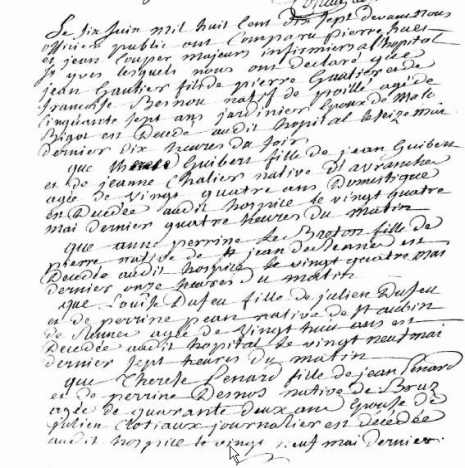 Le six juin mil huit cent dix sept devant nous
officier public ont comparu pierre hues
et jean louper majeurs infirmiers a lhopital
st yves lesquels nous ont declaré que
jean Gautier fils de pierre Gautier et de
francoise Besnou natif de poillé agé de
cinquante sept ans jardinier Epoux de Malo
Bigot est Decedé audit hopital le seize mai
dernier dix heures du soir
que therese Guibert fille de jean Guibert
et de jeanne chalier native d'avranches
agée de vingt quatre ans Domestique
est Decedée audit hospice le vingt quatre
mai dernier quatre heures du matin
que anne perrine Le Breton fille de
pierre native de st jean de Rennes est
Decedée audit hospice le vingt quatre mai
dernier onze heures du matin
que Louise Dufeu fille de julien Dufeu
et de perrine pean native de st aubin
de Rennes agée de vingt huit ans est
Decedée audit hopital le vingt neuf mai
dernier sept heures du matin
que Therese Lenard fille de jean Lenard
et de perrine Desnos native de Bruz
agée de quarante deux ans Epouse de
julien Clotiaux journalier est décédée
audit hospice le vingt neuf mai dernier